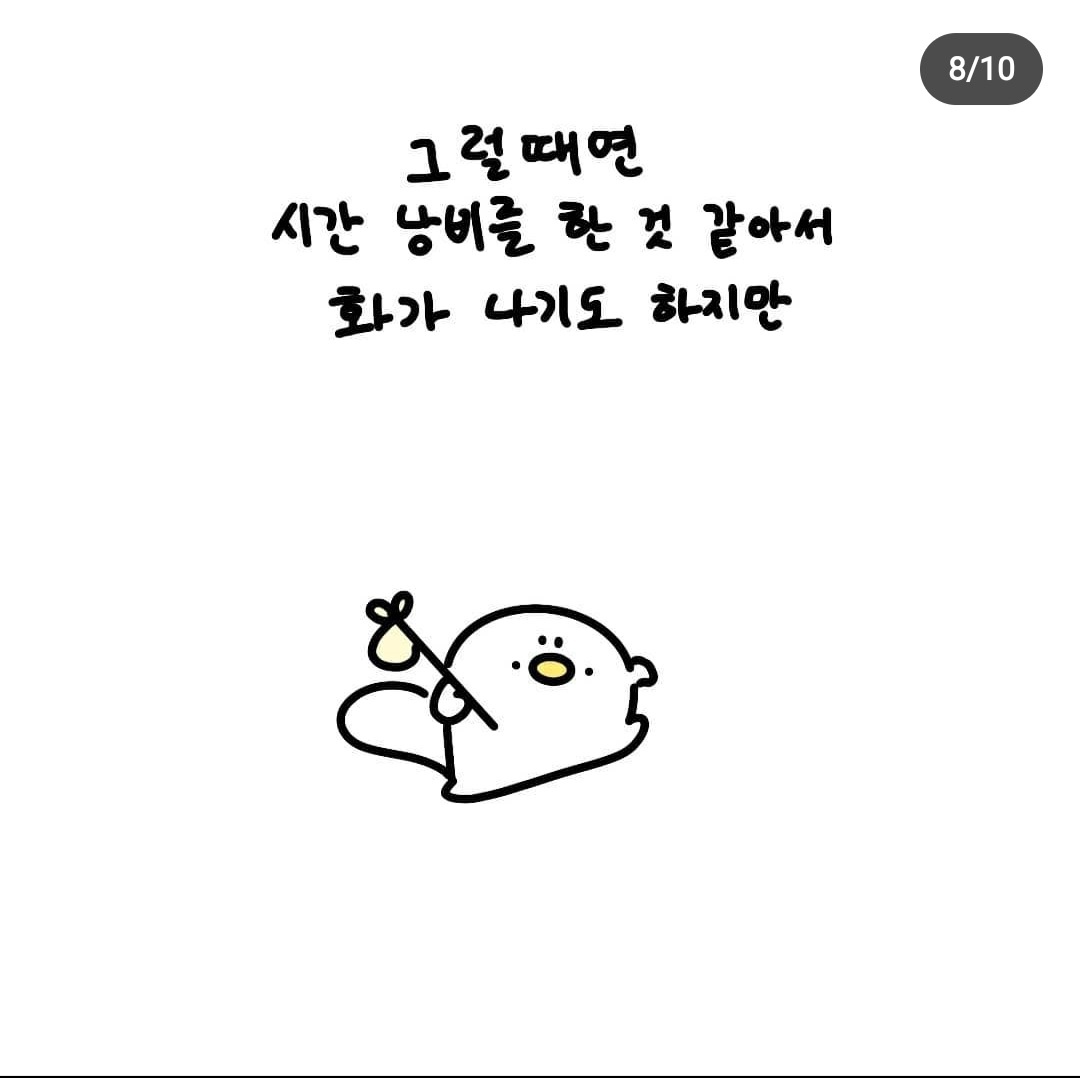 8/10
그럴때면
시간 낭비를 한 것 같아서
화가 나기도 하지만